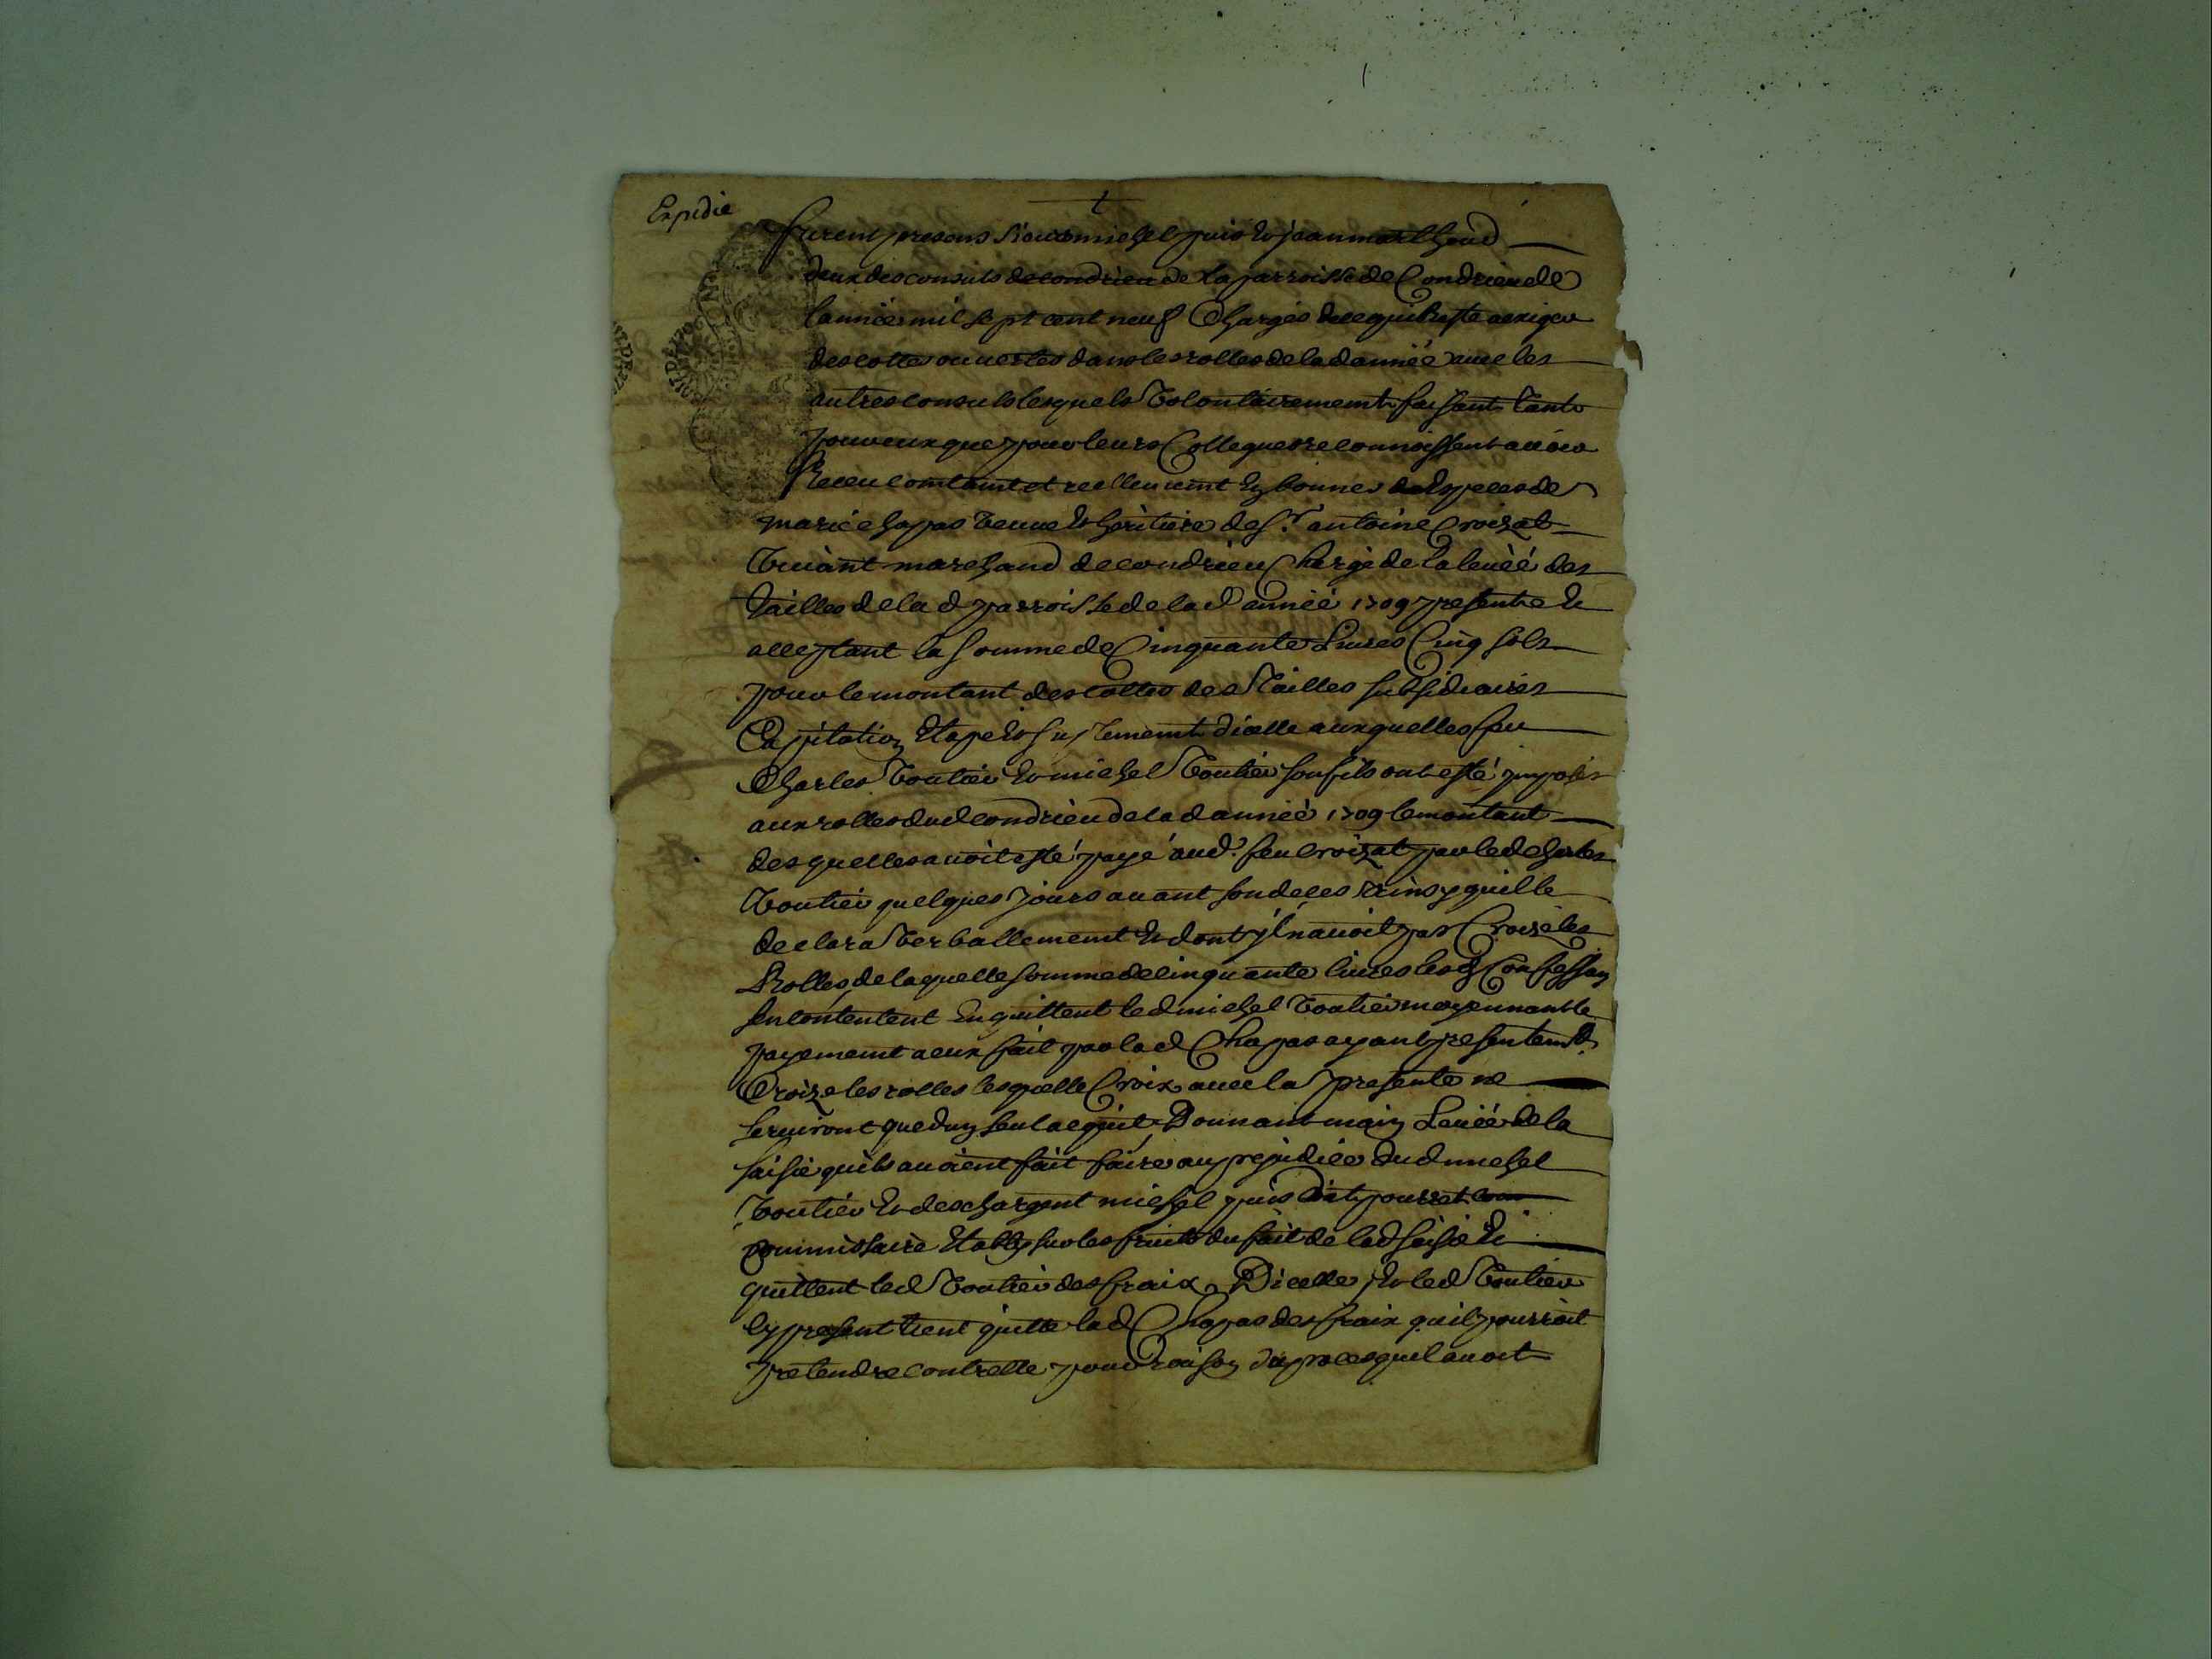 Expedie
furent presens sieurs michel puis et jean marthoud
deux des consuls de condrieu de la parroisse de Condrieu de
lannée mil sept cent neuf Chargés de ce qui Reste a exiger
des cottes ouuertes dans les rolles de lad année auec les
autres consuls lesquels Volontairement faisant tant
pour eux que pour leurs Collegues reconnoissent auoir
Receu comtamt et reellement En bonnes Especes de
marie chapas veuue Et héritiere de Sr. antoine Croizat
Viuant marchand de condrieu Chargé de la leuéé des
Tailles de la d parroisse de lad année 1709 presente Et
acceptant la somme de Cinquante Liures Cinq sols
pour le montant des cottes des Tailles subsidiaires
Capitation Etape Et suplement dicelle auxquelles feu
Charles Voutier Et michel Voutier son fils ont esté imposés
aux rolles dud condrieu de lad année 1709 le montant
desquelles auoit esté payé aud. feu croizat par led charles
Voutier quelques Jours auant son deces Ainsy quil le
declara Verballement Et dont il nauoit pas Croisé les
Rolles de laquelle somme de cinquante liures lesd Confessans
sen contentent En quittent led michel Voutier moyennant le
payement a eux fait par lad Chapas ayant presentemt.
Croizé les rolles lesquelle Croix auec la presente ne
seruiront que dun seul acquit Donnant main Leuéé de la
saisie quils auoient fait faire au prejudice dud michel
Voutier Et deschargent michel puis dit pourret
commissaire Etably sur les fruits du fait de lad saisie Et
quittent led Voutier des fraix Dicelle, Et led Voutier
Cy present tient quitte lad Chapas des fraix quil pourroit
pretendre contrelle pour raison du proces quil auoit